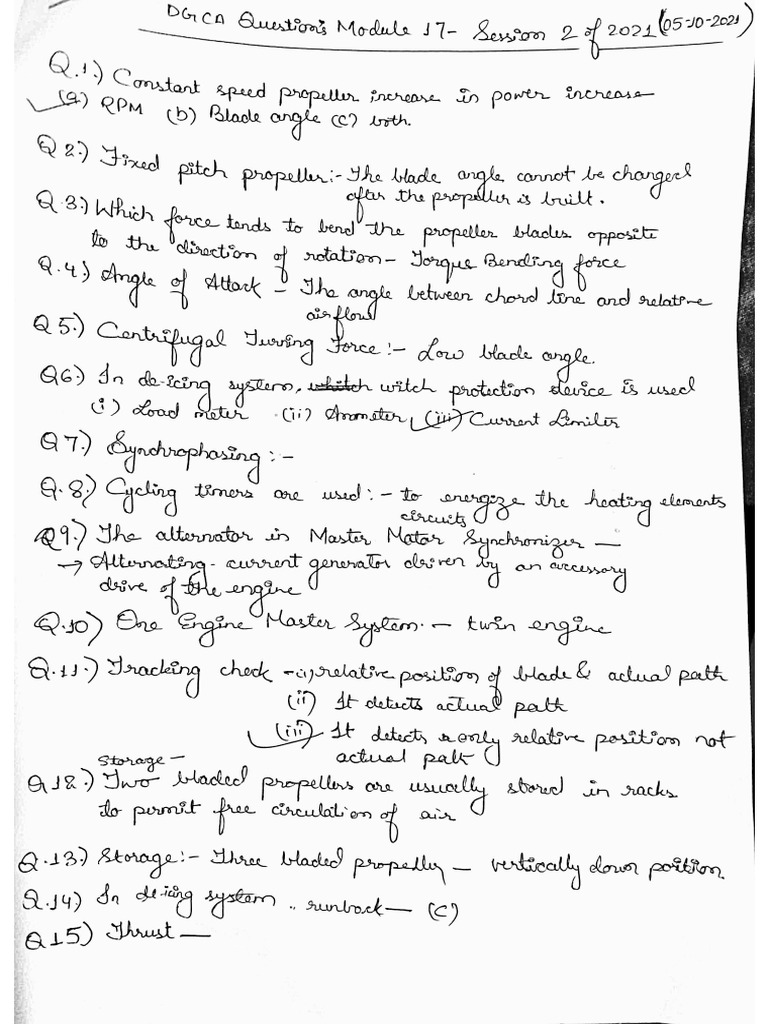 DGCA Questions Module 17- Session 2 of 2021 (05-10-2021)
Q.1.) Constant speed propeller increase in power increase
(a) RPM (b) Blade angle (c) both.
Q 2.) Fixed pitch propeller:- The blade angle cannot be changed
after the propeller is built.
Q.3.) Which force tends to bend the propeller blades opposite
to the direction of rotation - Torque Bending force
Q.4.) Angle of Attack - The angle between chord line and relative
airflow
Q 5.) Centrifugal Turving Force:- Low blade angle.
Q6.) In de-icing system, witch protection device is used
(i) Load meter (ii) Ammeter (iii) Current Limiter
Q 7.) Synchrophasing :-
Q.8.) Cycling timers are used:- to energize the heating elements
circuits
Q9.) The alternator in Master Motar Synchronizer —
→ Alternating-current generator driven by an accessory
drive of the engine
Q.10) One Engine Master System. - twin engine
Q.11.) Tracking check -(i) relative position of blade & actual path
(ii) It detects actual path
(iii) It detects only relative position not
actual path
Storage -
Q12.) Two bladed propellers are usually stored in racks
to permit free circulation of air
Q.13.) Storage:- Three bladed propeller - vertically down position.
Q.14) In de-icing system .. runback — (c)
Q15) Thrust —